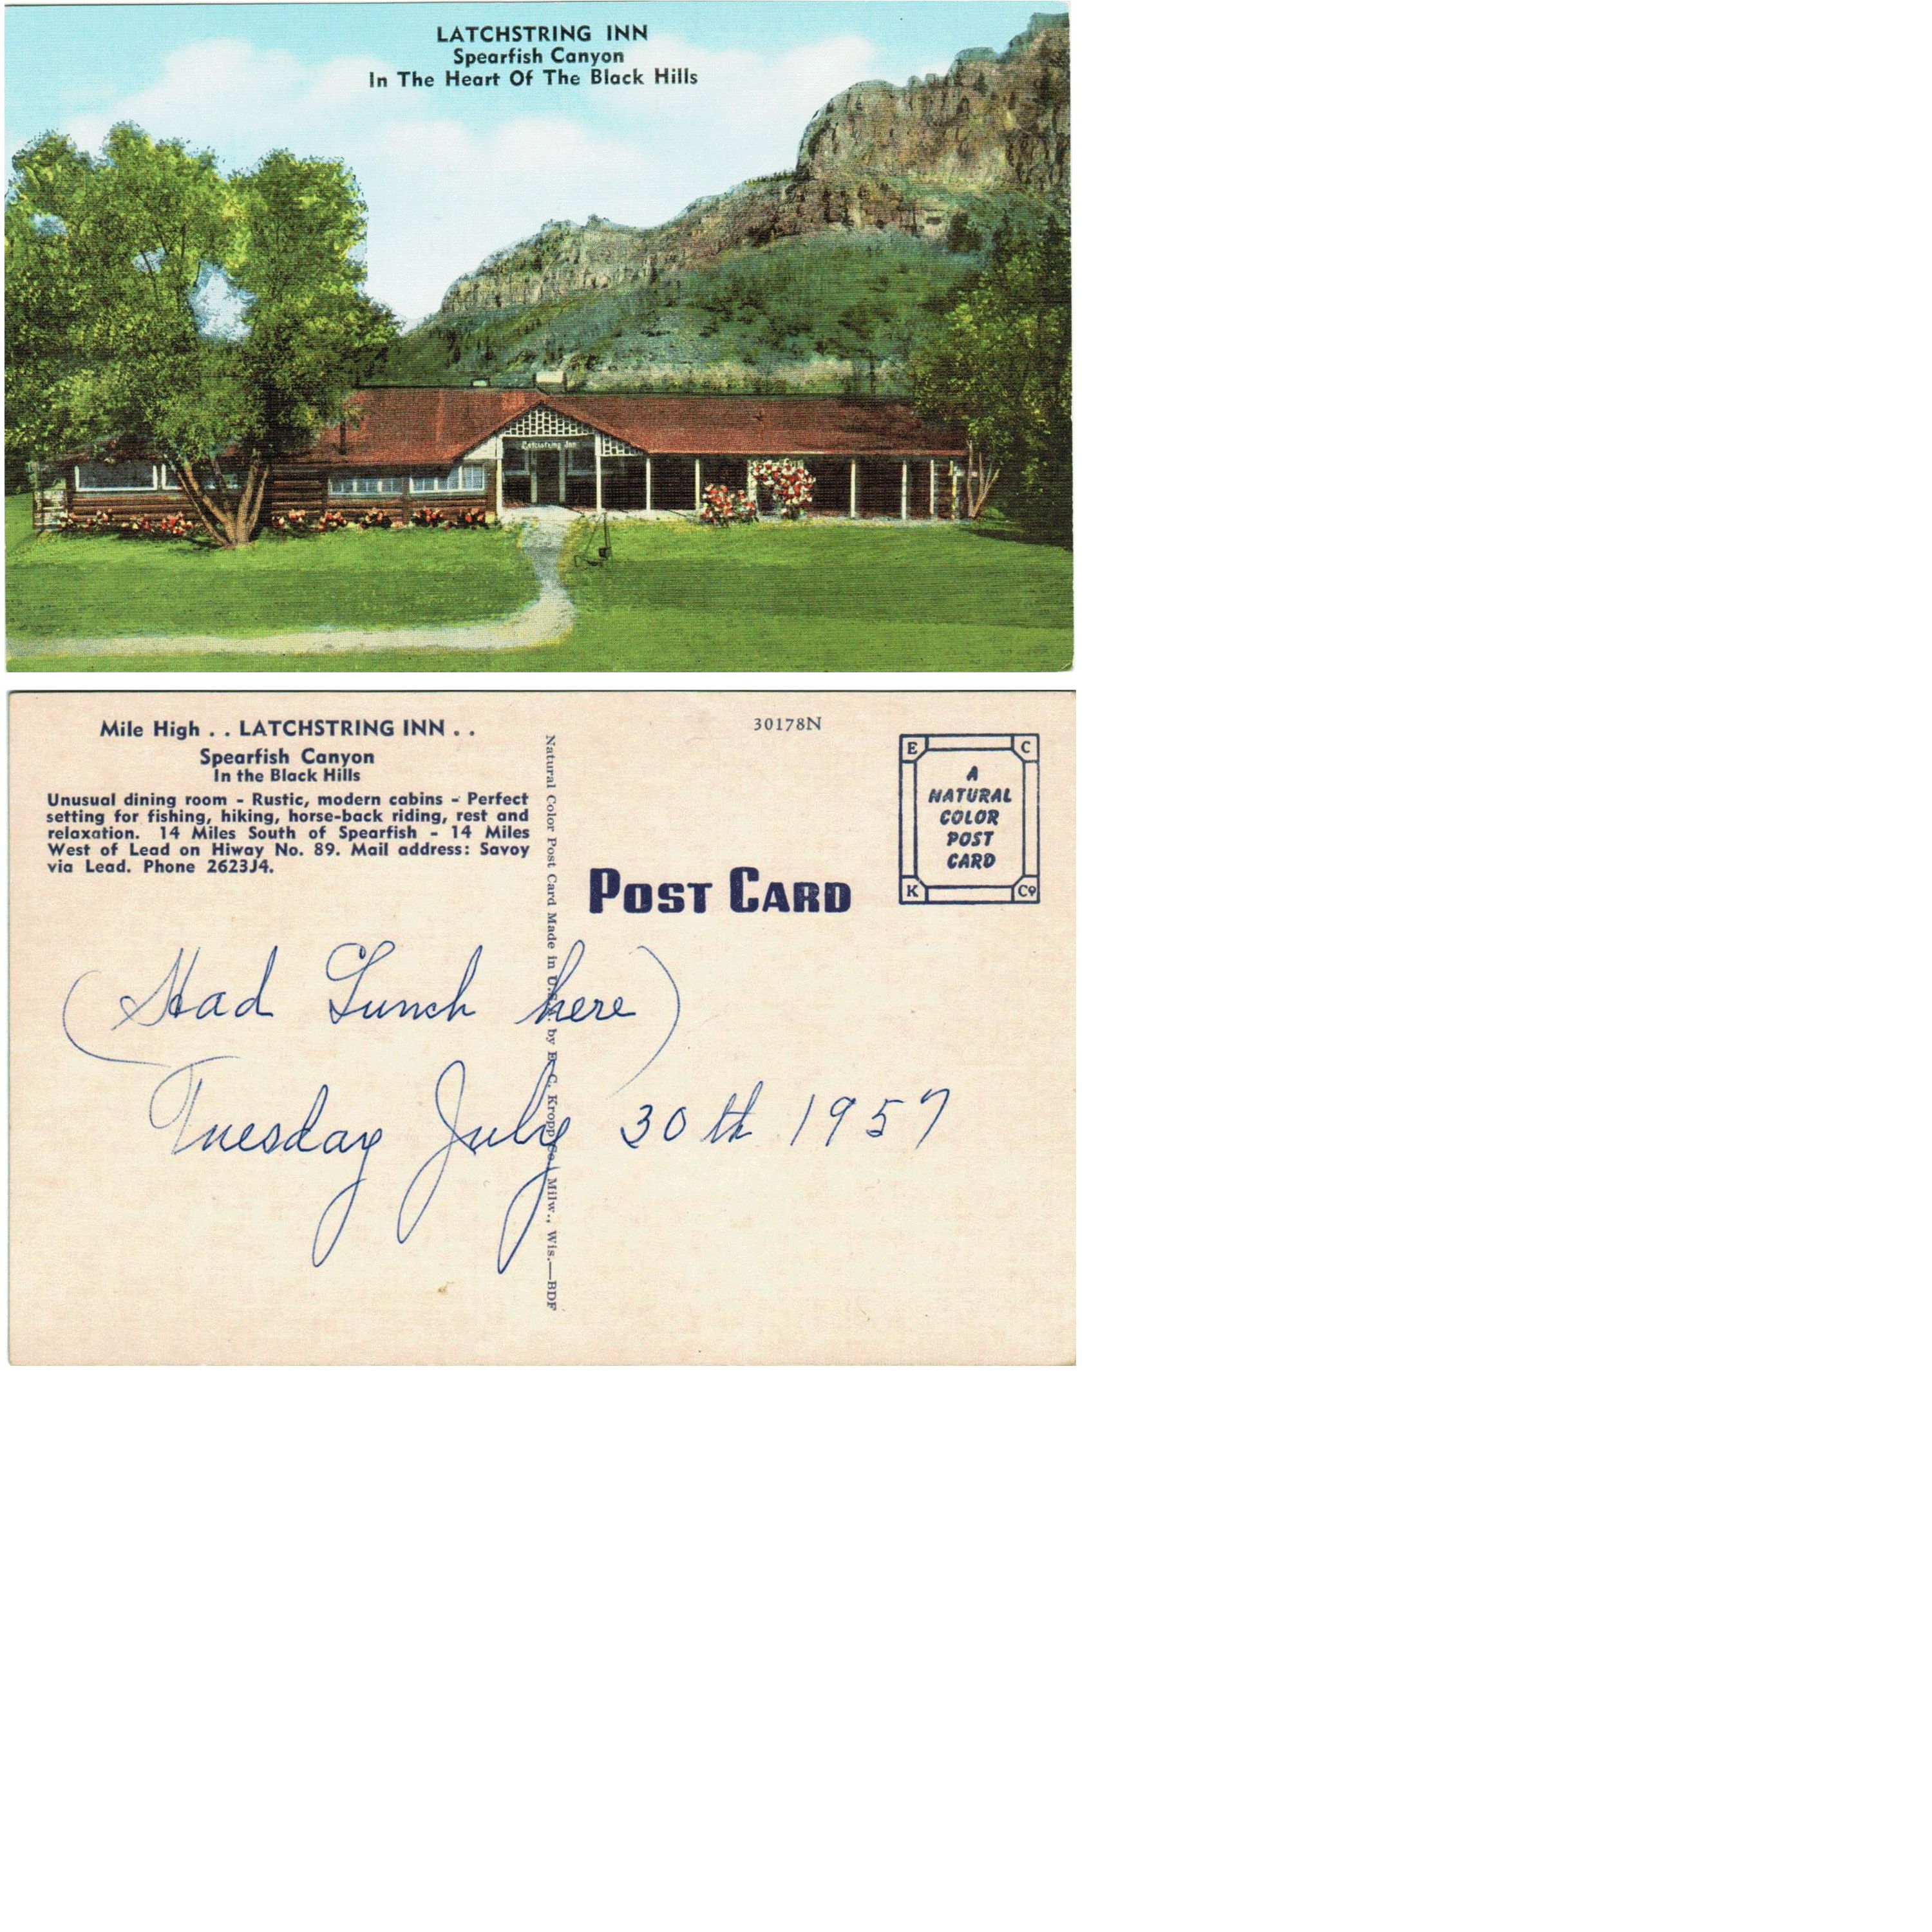 LATCHSTRING INN
Spearfish Canyon
In The Heart Of The Black Hills
Latchstring Inn
Mile High . . LATCHSTRING INN . .
Spearfish Canyon
In the Black Hills
Unusual dining room - Rustic, modern cabins - Perfect
setting for fishing, hiking, horse-back riding, rest and
relaxation. 14 Miles South of Spearfish - 14 Miles
West of Lead on Hiway No. 89. Mail address: Savoy
via Lead. Phone 2623J4.
Natural Color Post Card Made in U.S.A. by E. C. Kropp Co., Milw., Wis.—BDF
30178N
POST CARD
E C
A
NATURAL
COLOR
POST
CARD
K Co
(Had Lunch here)
Tuesday July 30th 1957